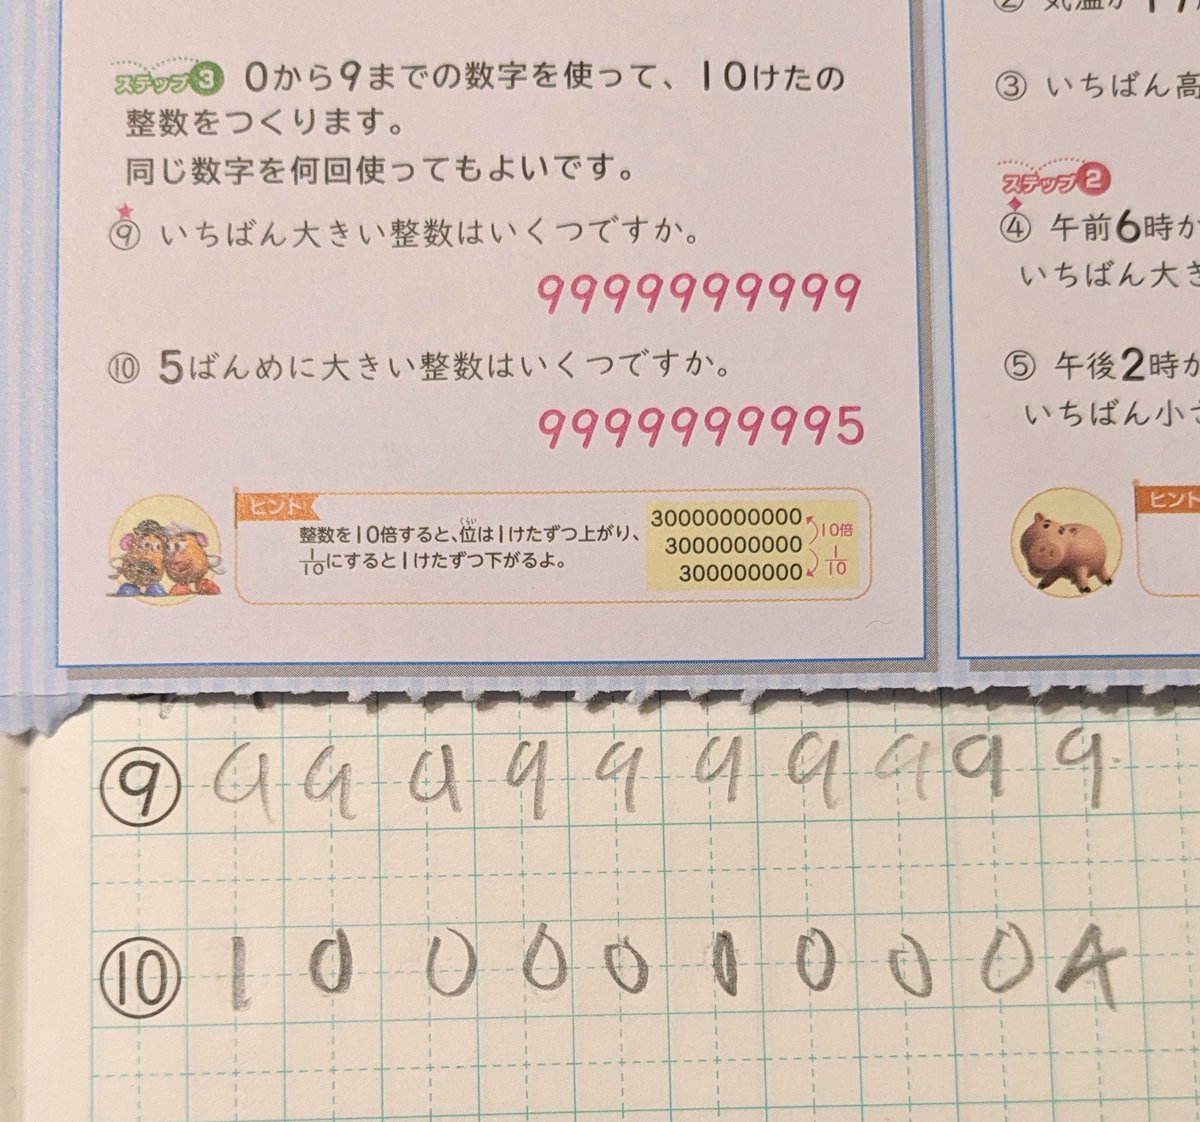 ステップ3 0から9までの数字を使って、10けたの
整数をつくります。
同じ数字を何回使ってもよいです。
⑨ いちばん大きい整数はいくつですか。
9999999999
⑩ 5ばんめに大きい整数はいくつですか。
9999999995
ヒント
整数を10倍すると、位は1けたずつ上がり、
くらい
1/10にすると1けたずつ下がるよ。
30000000000
3000000000
300000000
10倍
1/10
② 気温が
③ いちばん高
ステップ2
④ 午前6時か
いちばん大き
⑤ 午後2時か
いちばん小さ
ヒント
⑨ 9 9 9 9 9 9 9 9 9 9
⑩ 1 0 0 0 0 0 0 0 0 4